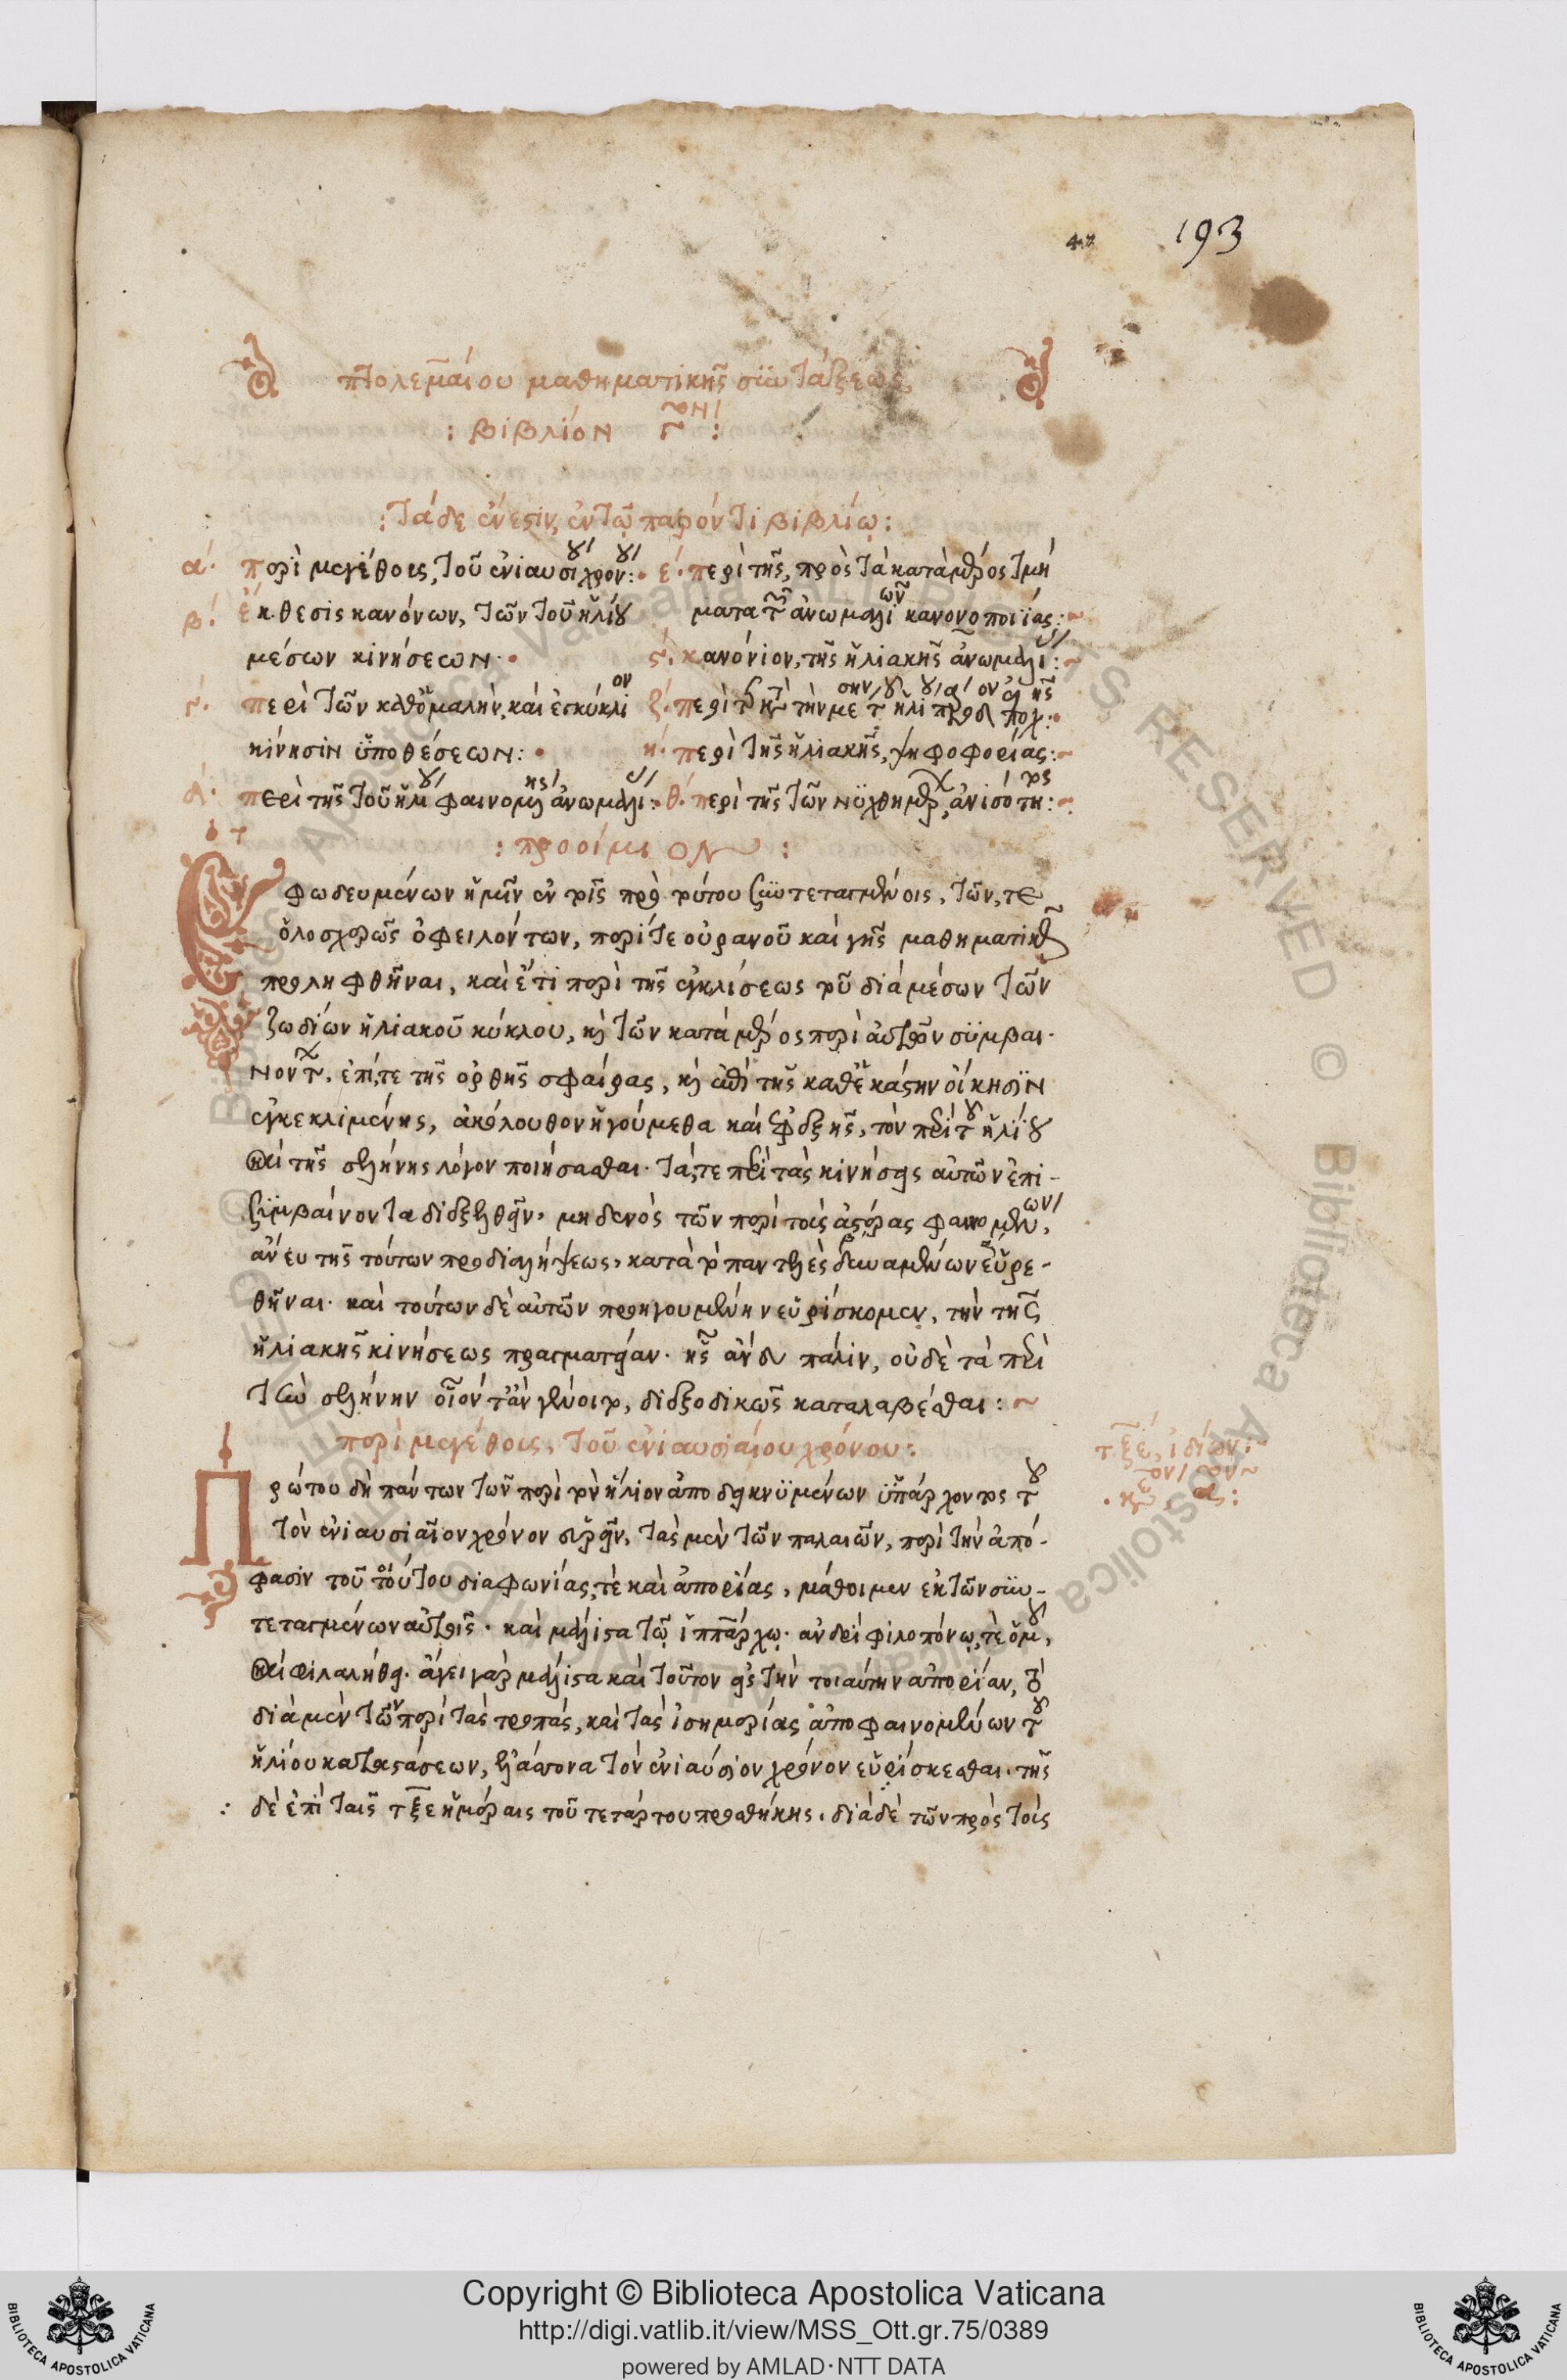 193
πτολεμαίου μαθηματικῆς συντάξεως,
: βιβλίον Γ ον :
: Τάδε ἔνεστιν, ἐν τῷ παρόντι βιβλίῳ :
α΄. περὶ μεγέθους, τοῦ ἐνιαυσίου χρόνου :
β΄. ἔκθεσις κανόνων, τῶν τοῦ ἡλίου
μέσων κινήσεων.
γ΄. περὶ τῶν καθ' ὁμαλὴν, καὶ ἐγκύκλιον
κίνησιν ὑποθέσεων :
δ΄. περὶ τῆς τοῦ ἡλίου φαινομένης ἀνωμαλι :
ε΄. περὶ τῆς, πρὸς τὰ κατὰ μέρος τμή
ματα τῶν ἀνωμαλιῶν κανονοποιίας :
ς΄. κανόνιον, τῆς ἡλιακῆς ἀνωμαλι :
ζ΄. περὶ τῆς κατὰ τὴν μέσην τοῦ ἡλίου πάροδον ἐποχῆς :
η΄. περὶ τῆς ἡλιακῆς, ψηφοφορίας :
θ΄. περὶ τῆς τῶν νυχθημέρων, ἀνισότητος :
: προοίμιον :
Ἐφωδευμένων ἡμῖν ἐν τοῖς πρὸ τούτου συντεταγμένοις, τῶν, τε
ὁλοσχερῶς ὀφειλόντων, περί τε οὐρανοῦ καὶ γῆς μαθηματικῶς
προληφθῆναι, καὶ ἔτι περὶ τῆς ἐγκλίσεως τοῦ διὰ μέσων τῶν
ζωδίων ἡλιακοῦ κύκλου, καὶ τῶν κατὰ μέρος περὶ αὐτὸν συμβαι-
νόντων. ἐπί, τε τῆς ὀρθῆς σφαίρας, καὶ ἐπὶ τῆς καθ' ἑκάστην οἴκησιν
ἐγκεκλιμένης, ἀκόλουθον ἡγούμεθα καὶ ἐφεξῆς, τὸν περὶ τοῦ ἡλίου
καὶ τῆς σελήνης λόγον ποιήσασθαι. τά, τε περὶ τὰς κινήσεις αὐτῶν ἐπι-
συμβαίνοντα διεξελθεῖν, μηδενὸς τῶν περὶ τοὺς ἀστέρας φαινομένων,
ἄνευ τῆς τούτων προδιαλήψεως, κατὰ τὸ παντελὲς δυναμένων εὑρε-
θῆναι. καὶ τούτων δὲ αὐτῶν προηγουμένην εὑρίσκομεν, τὴν τῆς
ἡλιακῆς κινήσεως πραγματείαν. ἧς ἄνευ πάλιν, οὐδὲ τὰ περὶ
τὴν σελήνην οἷόν τ' ἂν γένοιτο, διεξοδικῶς καταλαβέσθαι :
περὶ μεγέθους, τοῦ ἐνιαυσιαίου χρόνου :
Πρώτου δὴ πάντων τῶν περὶ τὸν ἥλιον ἀποδεικνυμένων ὑπάρχοντος τοῦ
τὸν ἐνιαυσιαῖον χρόνον εὑρεῖν, τὰς μὲν τῶν παλαιῶν, περὶ τὴν ἀπό-
φασιν τοῦ τούτου διαφωνίας, τὲ καὶ ἀπορίας, μάθοιμεν ἐκ τῶν συν-
τεταγμένων αὐτοῖς. καὶ μάλιστα τῷ ἱππάρχῳ. ἀνδρὶ φιλοπόνῳ, τὲ ὁμοῦ,
καὶ φιλαλήθει. ἄγει γὰρ μάλιστα καὶ τοῦτον εἰς τὴν τοιαύτην ἀπορίαν, τὸ
διὰ μὲν τῶν περὶ τὰς τροπάς, καὶ τὰς ἰσημερίας ἀποφαινομένων τοῦ
ἡλίου καταστάσεων, ἐλάσσονα τὸν ἐνιαύσιον χρόνον εὑρίσκεσθαι. τῆς
δὲ ἐπὶ ταῖς τξε ἡμέραις τοῦ τετάρτου προσθήκης. διὰ δὲ τῶν πρὸς τοῖς
Copyright © Biblioteca Apostolica Vaticana
http://digi.vatlib.it/view/MSS_Ott.gr.75/0389
powered by AMLAD·NTT DATA
BIBLIOTECA APOSTOLICA VATICANA
BIBLIOTECA APOSTOLICA VATICANA